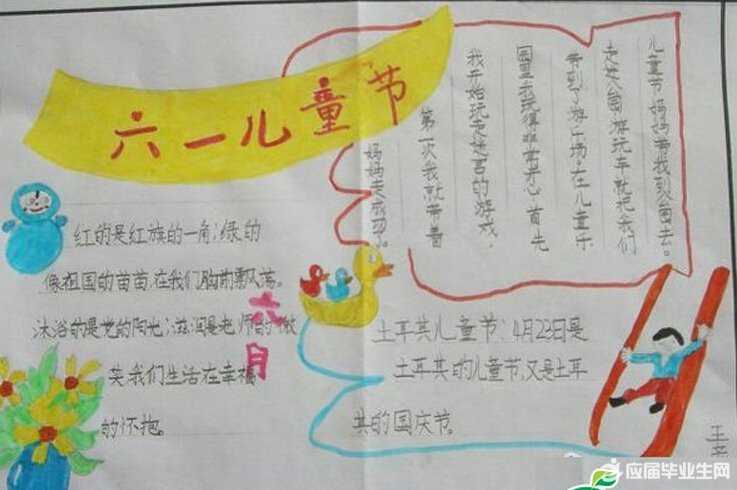 六一儿童节
儿童节妈妈带我到公园去。
走进公园游玩车就把我们
带到了游乐场。在儿童乐
园里我玩得非常开心。首先
我开始玩走迷宫的游戏,
第一次我就带着
妈妈走成功了。
红的是红族的一角;绿的
像祖国的苗苗,在我们胸前飘荡。
沐浴的是党的阳光;滋润是老师的微
笑我们生活在幸福
的怀抱。
六月
土耳其儿童节:4月22日是
土耳其的儿童节,又是土耳
其的国庆节。
王
应届毕业生网